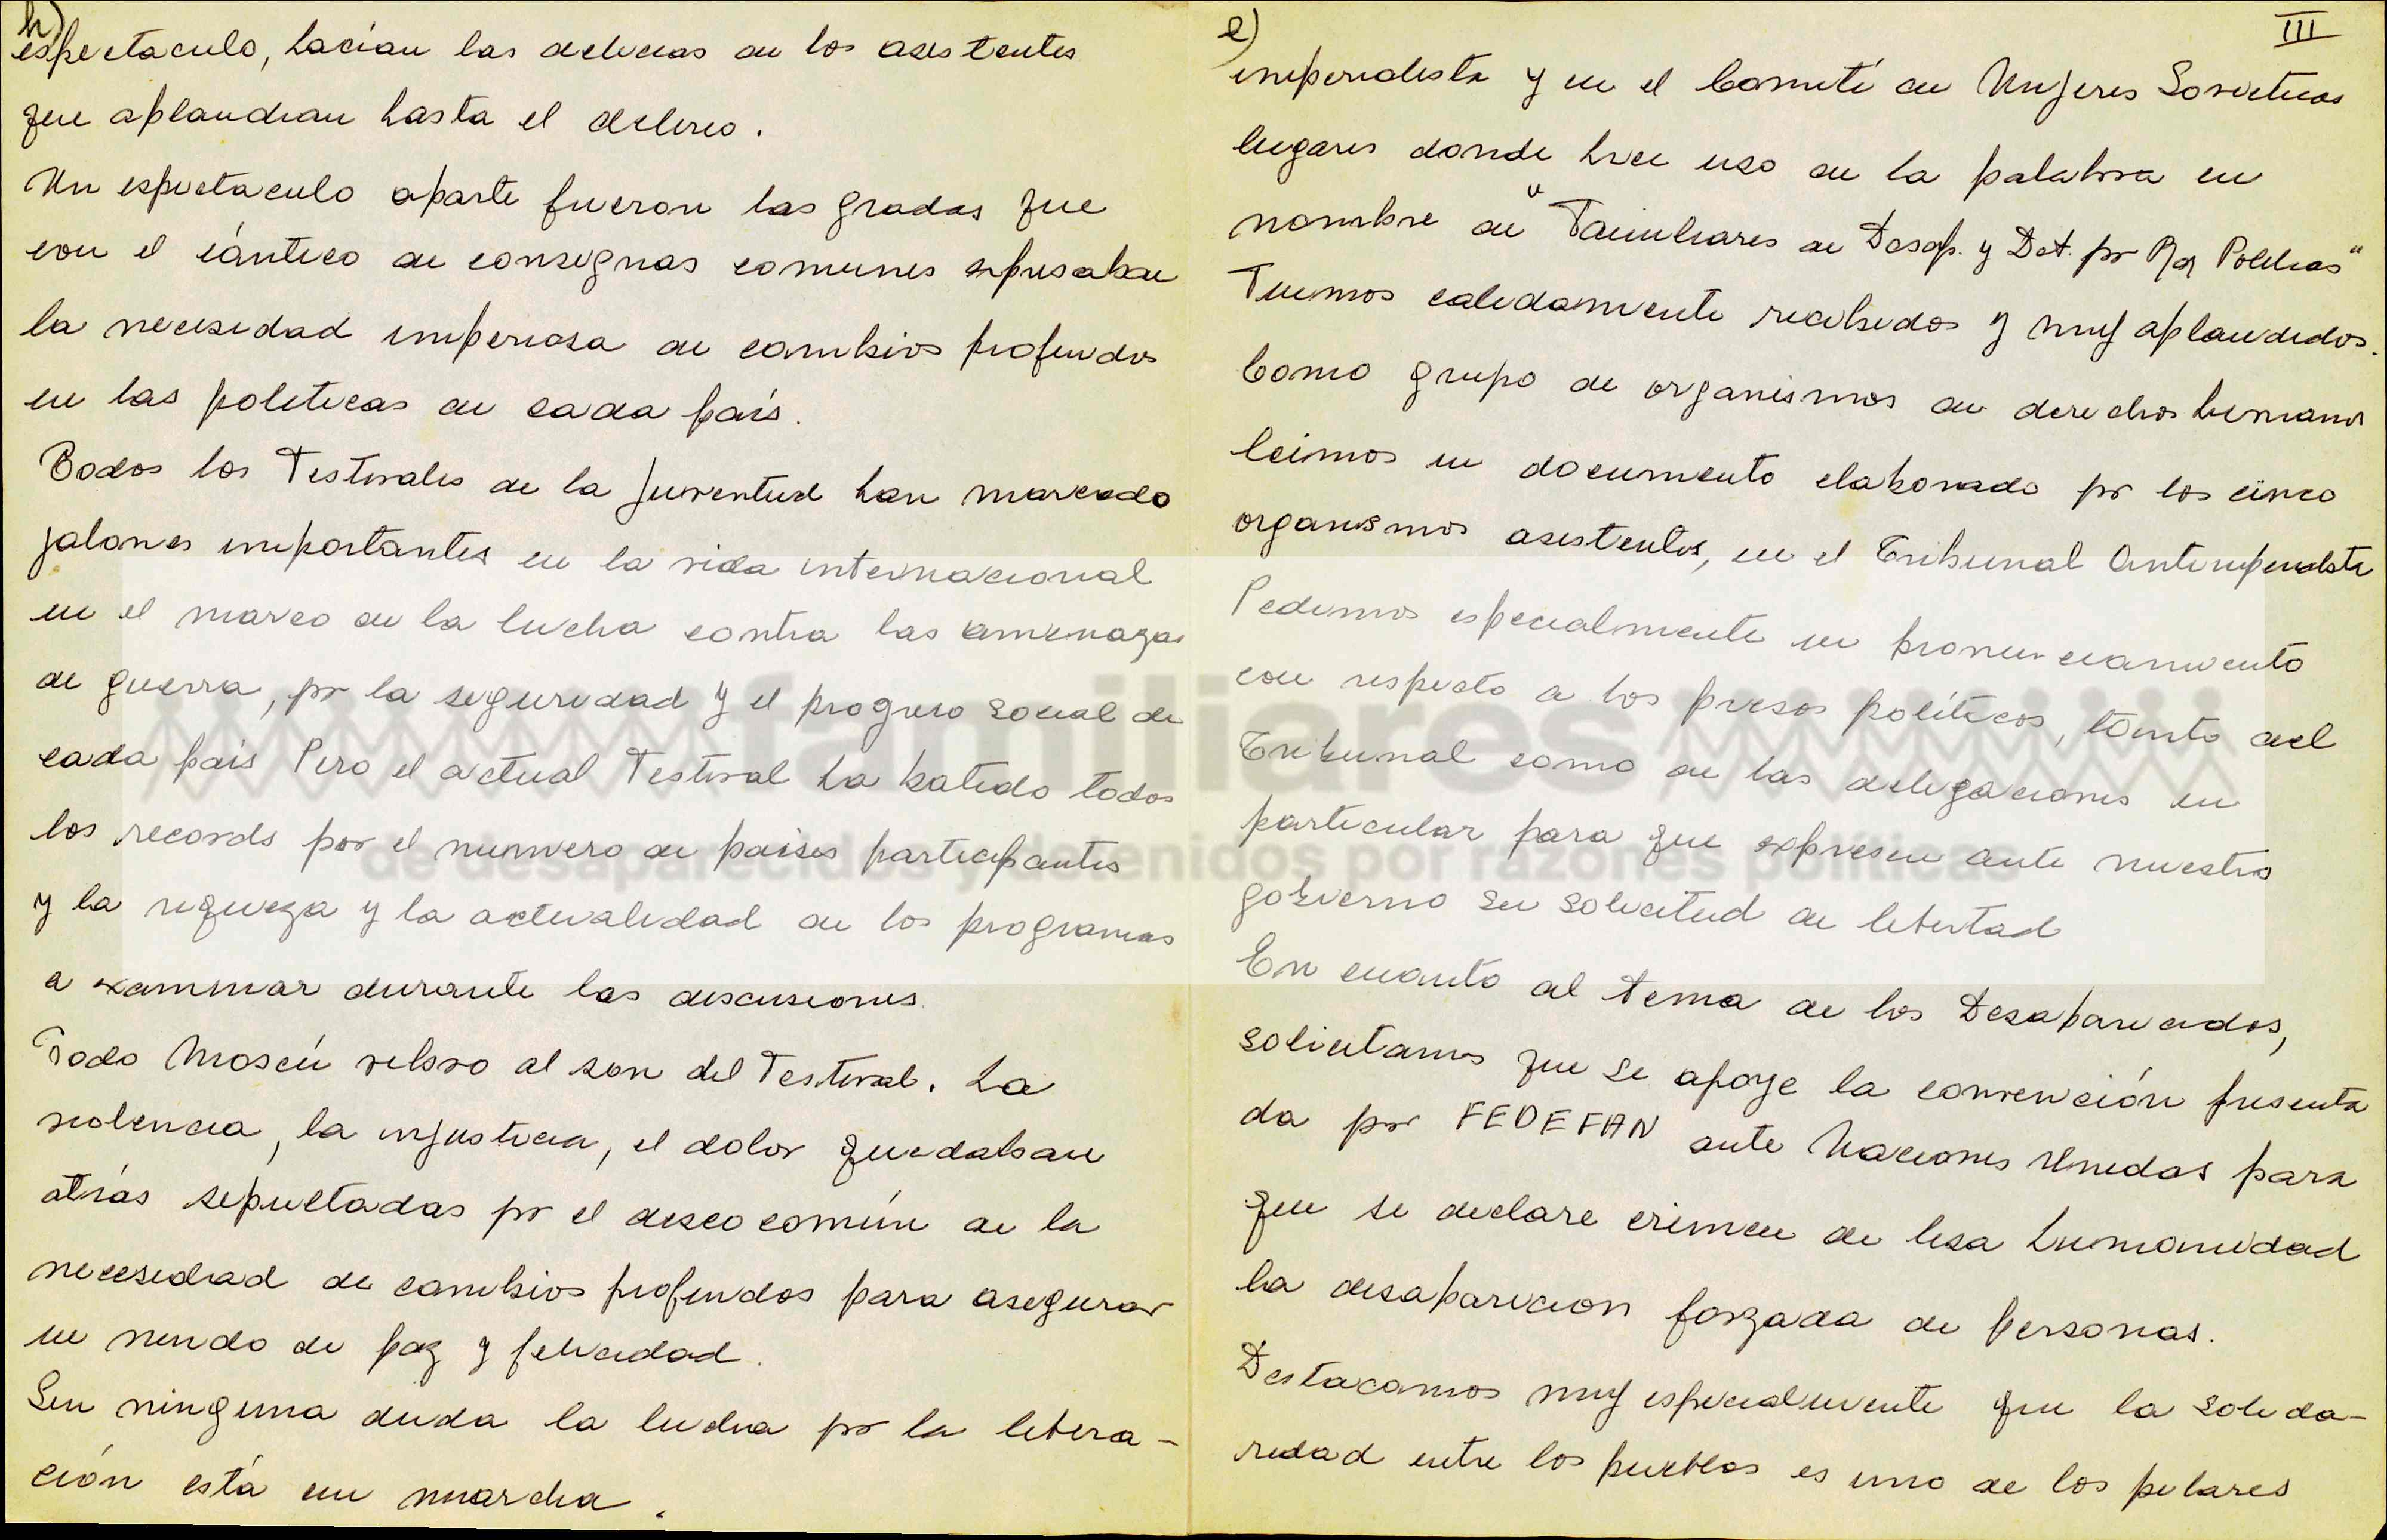 h)
espectaculo, hacían las delicias de los asistentes
que aplaudian hasta el delirio.
Un espectaculo aparte fueron las gradas que
con el cántico de consignas comunes expresaban
la necesidad imperiosa de cambios profundos
en las politicas de cada país.
Todos los Festivales de la Juventud han marcado
jalones importantes en la vida internacional
en el marco de la lucha contra las amenazas
de guerra, por la seguridad y el progreso social de
cada país Pero el actual Festival ha batido todos
los records por el numero de paises participantes
y la riqueza y la actualidad de los programas
a examinar durante las discusiones.
Todo Moscú vibro al son del Festival. La
violencia, la injusticia, el dolor quedaban
atrás sepultadas por el deseo común de la
necesidad de cambios profundos para asegurar
un mundo de paz y felicidad.
Sin ninguna duda la lucha por la libera-
ción está en marcha.
e)
III
imperialista y en el Comité de Mujeres Sovieticas
lugares donde hice uso de la palabra en
nombre de "Familiares de Desap. y Det. por Raz Politicas"
Fuimos calidamente recibidos y muy aplaudidos.
Como grupo de organismos de derechos humanos
leimos un documento elaborado por los cinco
organismos asistentes, en el Tribunal Antimperialista
Pedimos especialmente un pronunciamiento
con respecto a los presos políticos, tanto del
Tribunal como de las delegaciones en
particular para que expresen ante nuestro
gobierno su solicitud de libertad
En cuanto al tema de los Desaparecidos,
solicitamos que se apoye la convención presenta
da por FEDEFAN ante Naciones Unidas para
que se declare crimen de lesa humanidad
la desaparicion forzada de personas.
Destacamos muy especialmente que la solida-
ridad entre los pueblos es uno de los pilares
familiares
de desaparecidos y detenidos por razones políticas